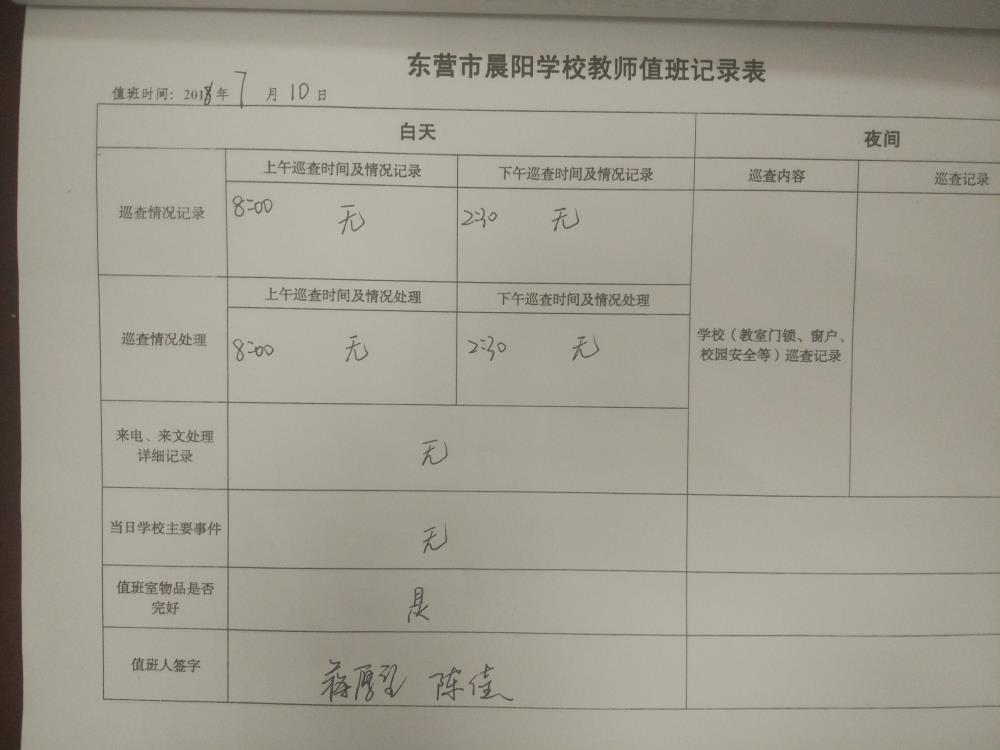 东营市晨阳学校教师值班记录表
值班时间：2018年7月10日
白天 夜间
上午巡查时间及情况记录 下午巡查时间及情况记录 巡查内容 巡查记录
巡查情况记录 8:00 无 2:30 无
上午巡查时间及情况处理 下午巡查时间及情况处理
巡查情况处理 8:00 无 2:30 无
学校（教室门锁、窗户、
校园安全等）巡查记录
来电、来文处理
详细记录
无
当日学校主要事件 无
值班室物品是否
完好
是
值班人签字 陈佳